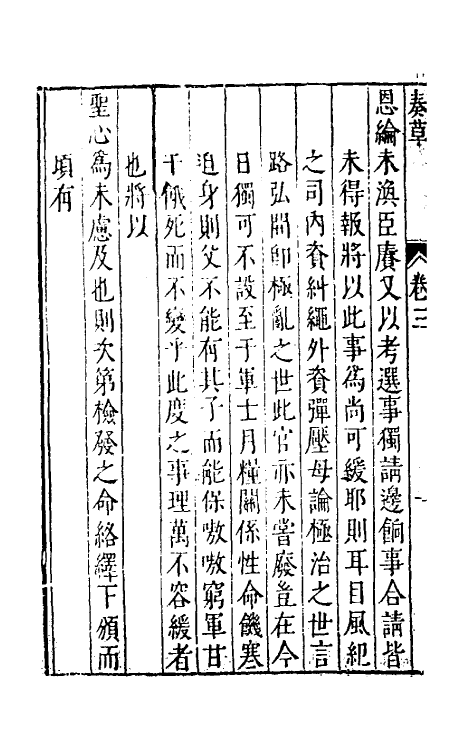 奏草 卷三
恩綸未渙臣賡又以考選事獨請邊餉事合請皆
未得報將以此事為尚可緩耶則耳目風紀
之司內資糾繩外資彈壓毋論極治之世言
路弘開即極亂之世此官亦未嘗廢豈在今
日獨可不設至于軍士月糧關係性命饑寒
迫身則父不能有其子而能保嗷嗷窮軍甘
于餓死而不變乎此度之事理萬不容緩者
也將以
聖心為未慮及也則次第檢發之命絡繹下頒而
頃有